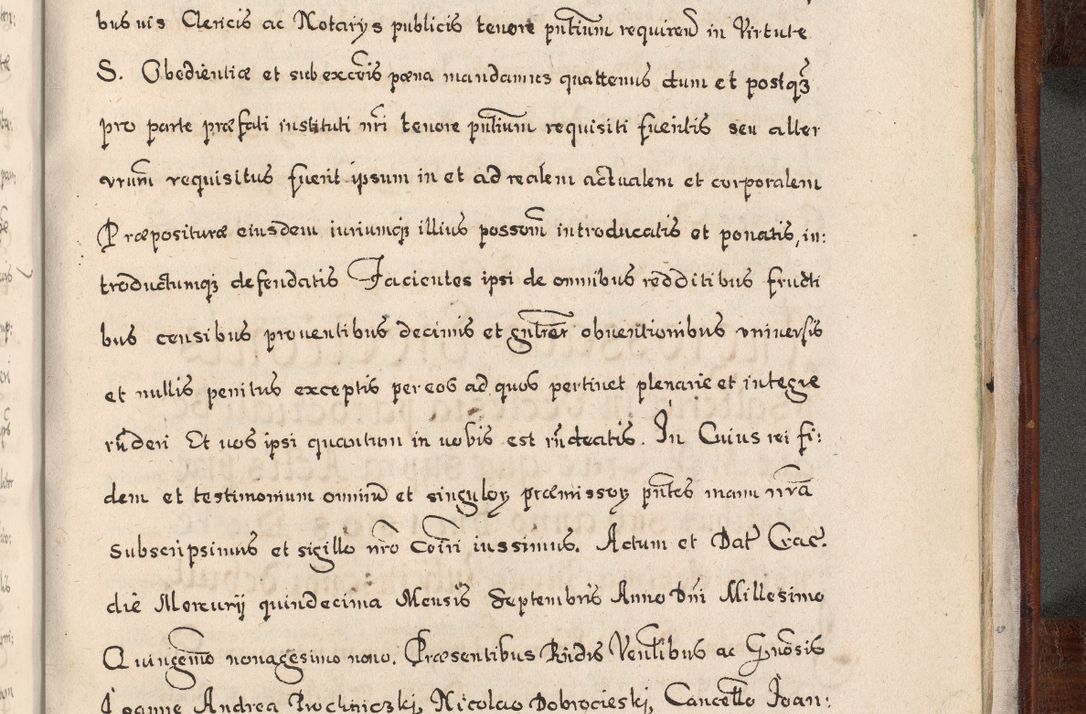 bus uis Clericis ac Notarys publicis tenore pntium requirend in Virtute
S. Obedientiæ et sub excōis pœna mandamus quattenus dum et postqȝ
pro parte præfati instituti nri tenore pntium requisiti fueritis seu alter
vrum requisitus fuerit ipsum in et ad realem actualem et corporalem
Præposituræ eiusdem iuriumqȝ illius possom introducatis et ponatis, in:
troductumqȝ defendatis Facientes ipsi de omnibus redditibus fructi
bus censibus prouentibus decimis et gnlter obuentionibus vniuersis
et nullis penitus exceptis per eos ad quos pertinet plenarie et integre
rnderi Et uos ipsi quantum in uobis est rndeatis. In Cuius rei fi:
dem et testimonium omniu et singuloꝝ præmissoꝝ pntes manu nra
subscripsimus et sigillo nro Comri iussimus. Actum et Dat Crac.
die Mercurij quindecima Mensis Septembris Anno Dni Millesimo
Quingemo nonagesimo nono. Præsentibus Rndis Venlibus ac Gnosis
Joanne Andrea Prochniczki, Nicolao Dobrocieski, Cancello Joan: